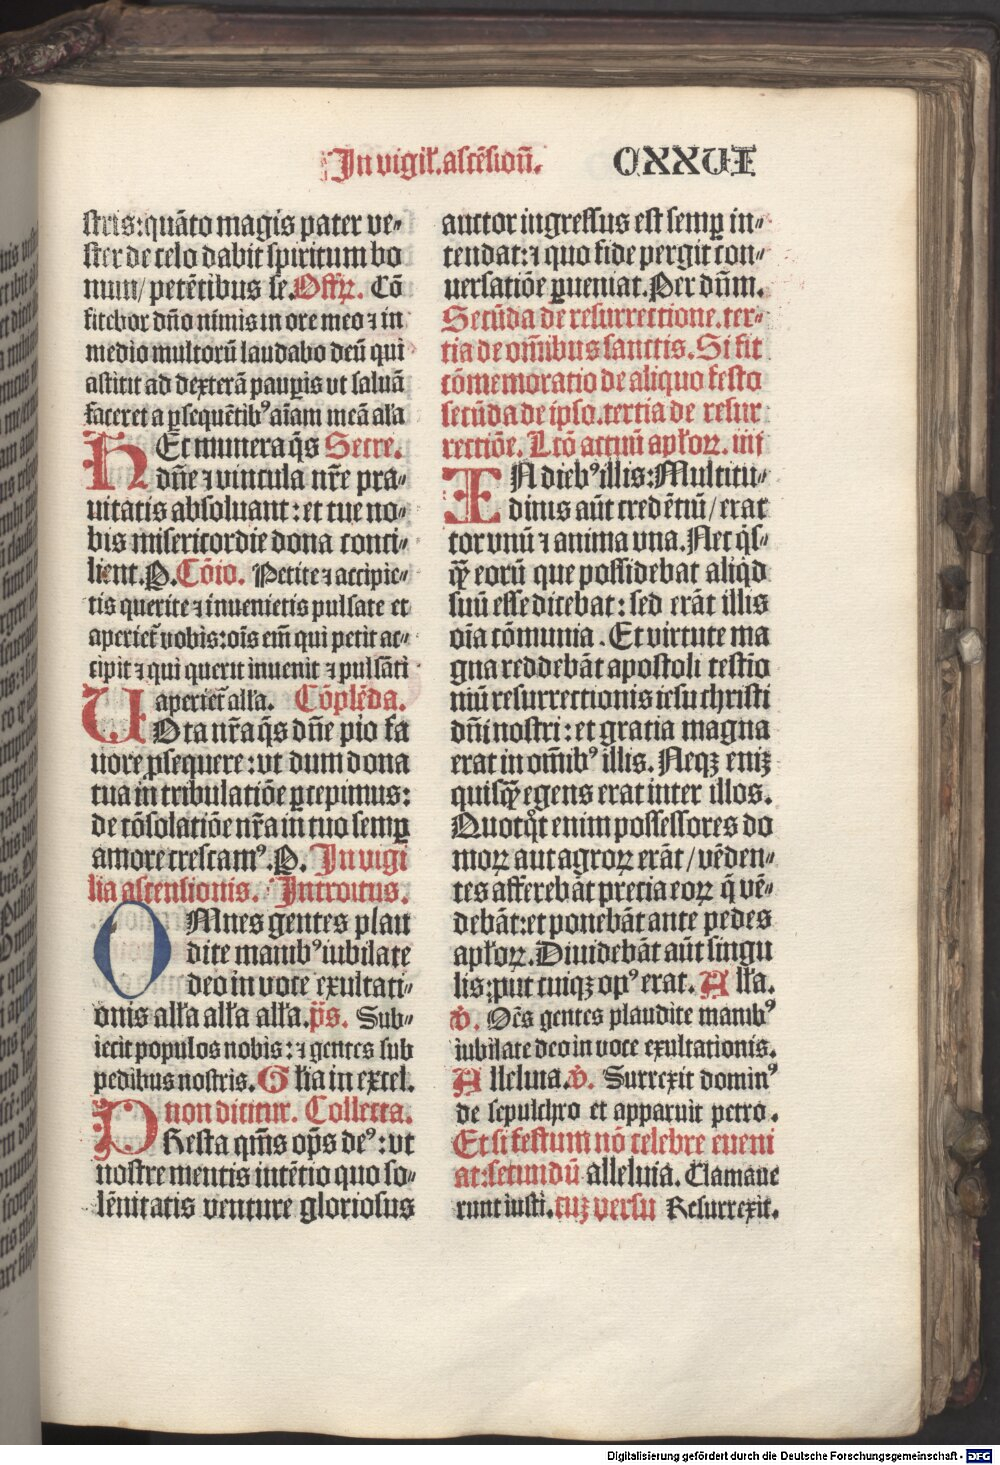 In vigil̄. ascēsion̄. CXXVI
stris: quāto magis pater ve-
ster de celo dabit spiritum bo
num / petētibus se. Offr̄ꝫ. Cō
fitebor dn̄o nimis in ore meo ⁊ in
medio multorū laudabo deū qui
astitit ad dexterā paup̲is ut saluā
faceret a p̲sequētibꝰ aīam meā all̄a
HEt munera q̄s Secre.
dn̄e ⁊ vincula nr̄e pra-
uitatis absoluant: et tue no-
bis misericordie dona conci-
lient. P. Cōio. Petite ⁊ accipie-
tis querite ⁊ inuenietis pulsate et
aperiet̄ vobis: oīs em̄ qui petit ac-
cipit ⁊ qui querit inuenit ⁊ pulsāti
aperiet̄ all̄a. Cōplēda.
VOta nr̄a q̄s dn̄e pio fa
uore p̲sequere: ut dum dona
tua in tribulatiōe p̲cepimus:
de cōsolatiōe nr̄a in tuo semp̲
amore crescamꝰ. P. In vigi
lia ascensionis. Introitus.
OMnes gentes plau
dite manibꝰ iubilate
deo in voce exultati-
onis all̄a all̄a all̄a. p̄s. Sub-
iecit populos nobis: ⁊ gentes sub
pedibus nostris. Gl̄ia in excel.
non dicitur. Collecta.
PResta qm̄s op̄s deꝰ: ut
nostre mentis intētio quo so-
lēnitatis venture gloriosus
auctor ingressus est semp̲ in-
tendat: ⁊ quo fide pergit con-
uersatiōe p̲ueniat. Per dn̄m.
Secūda de resurrectione. ter-
tia de om̄ibus sanctis. Si fit
cōmemoratio de aliquo festo
secūda de ipso. tertia de resur
rectiōe. Lc̄o actuū apl̄oꝝ. iiij
IN diebꝰ illis: Multitu-
dinis aūt credētiū / erat
cor vnū ⁊ anima vna. Nec q̇s-
q̄ꝫ eorū que possidebat aliq̇d
suū esse dicebat: sed erāt illis
oīa cōmunia. Et virtute ma
gna reddebāt apostoli testīo
niū resurrectionis iesu christi
dn̄i nostri: et gratia magna
erat in om̄ibꝰ illis. Neqꝫ eniꝫ
quisq̄ꝫ egens erat inter illos.
Quotq̇t enim possessores do
moꝝ aut agroꝝ erāt / vēden-
tes afferebāt precia eoꝝ q̄ vē-
debāt: et ponebāt ante pedes
apl̄oꝝ. Diuidebāt aūt singu
lis: put cuiqꝫ opꝰ erat. All̄a.
v̄. Oēs gentes plaudite manibꝰ
iubilate deo in voce exultationis.
Alleluia. v̄. Surrexit dominꝰ
de sepulchro et apparuit petro.
Et si festum nō celebre eueni
at: secundū alleluia. Clamaue
runt iusti. cuꝫ versu Resurrexit.
Digitalisierung gefördert durch die Deutsche Forschungsgemeinschaft - DFG